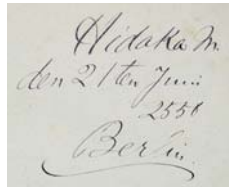 Hidaka M.
den 21ten Juni
2551
Berlin.